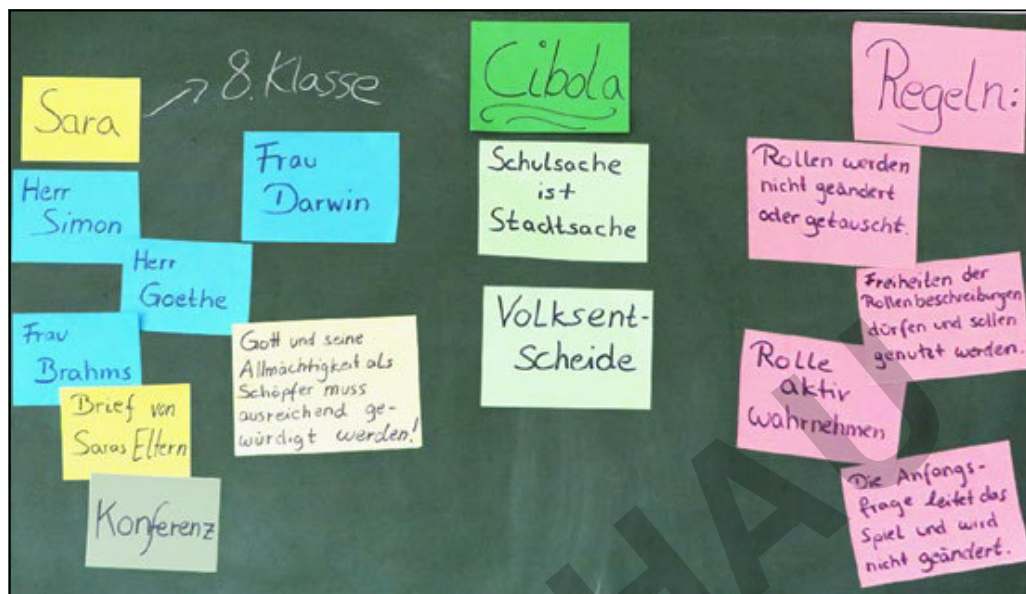 Sara
8. Klasse
Herr
Simon
Frau
Darwin
Herr
Goethe
Frau
Brahms
Brief von
Saras Eltern
Gott und seine
Allmächtigkeit als
Schöpfer muss
ausreichend ge-
würdigt werden!
Konferenz
Cibola
Schulsache
ist
Stadtsache
Volksent-
scheide
Regeln:
Rollen werden
nicht geändert
oder getauscht.
Freiheiten der
Rollenbeschreibungen
dürfen und sollen
genutzt werden.
Rolle
aktiv
wahrnehmen
Die Anfangs-
frage leitet das
Spiel und wird
nicht geändert.